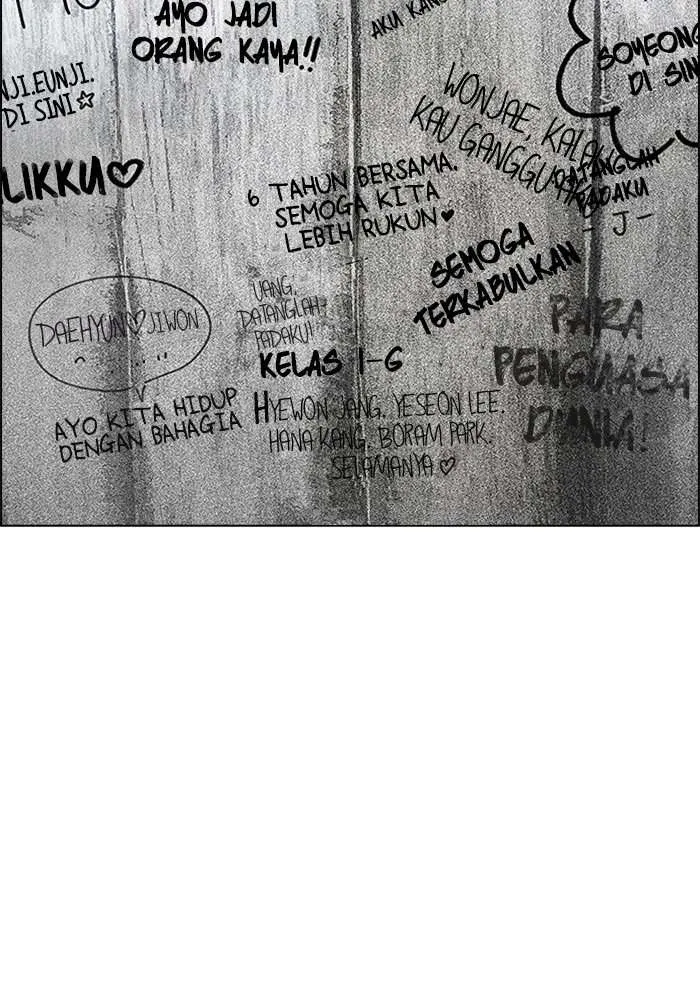 AYO JADI
ORANG KAYA!!
AKU
SOYEONG
DI SINI
NJI.EUNJI.
DI SINI☆
LIKKU♡
6 TAHUN BERSAMA.
SEMOGA KITA
LEBIH RUKUN♥
WONJAE, KALAU
KAU GANGGU
DATANGLAH
PADAKU
- J -
SEMOGA
TERKABULKAN
DAEHYUN♡JIWON
UANG,
DATANGLAH
PADAKU!
PARA
PENGUASA
DUNIA!
AYO KITA HIDUP
DENGAN BAHAGIA
KELAS 1-6
HYEWON JANG. YESEON LEE.
HANA KANG. BORAM PARK.
SELAMANYA♡